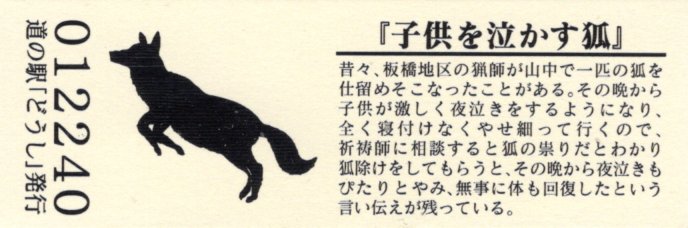 『子供を泣かす狐』
昔々、板橋地区の猟師が山中で一匹の狐を
仕留めそこなったことがある。その晩から
子供が激しく夜泣きをするようになり、
全く寝付けなくやせ細って行くので、
祈祷師に相談すると狐の祟りだとわかり
狐除けをしてもらうと、その晩から夜泣きも
ぴたりとやみ、無事に体も回復したという
言い伝えが残っている。
012240
道の駅「どうし」発行